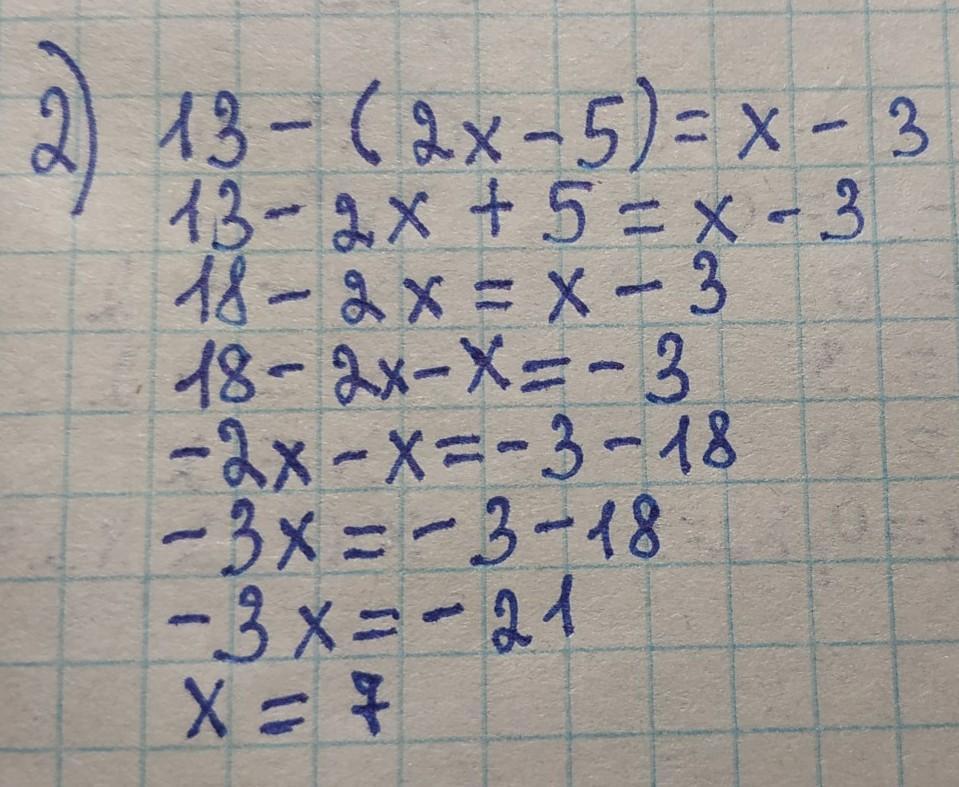 2) 13 - (2x - 5) = x - 3
13 - 2x + 5 = x - 3
18 - 2x = x - 3
18 - 2x - x = - 3
- 2x - x = - 3 - 18
- 3x = - 3 - 18
- 3x = - 21
x = 7